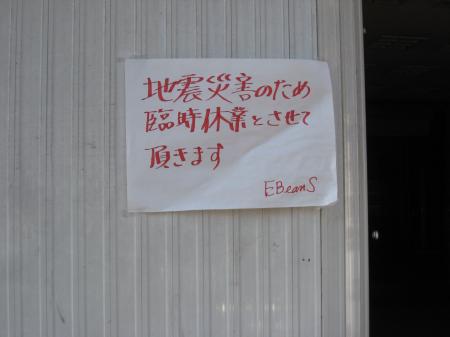 地震災害のため
臨時休業とさせて
頂きます
EBeanS